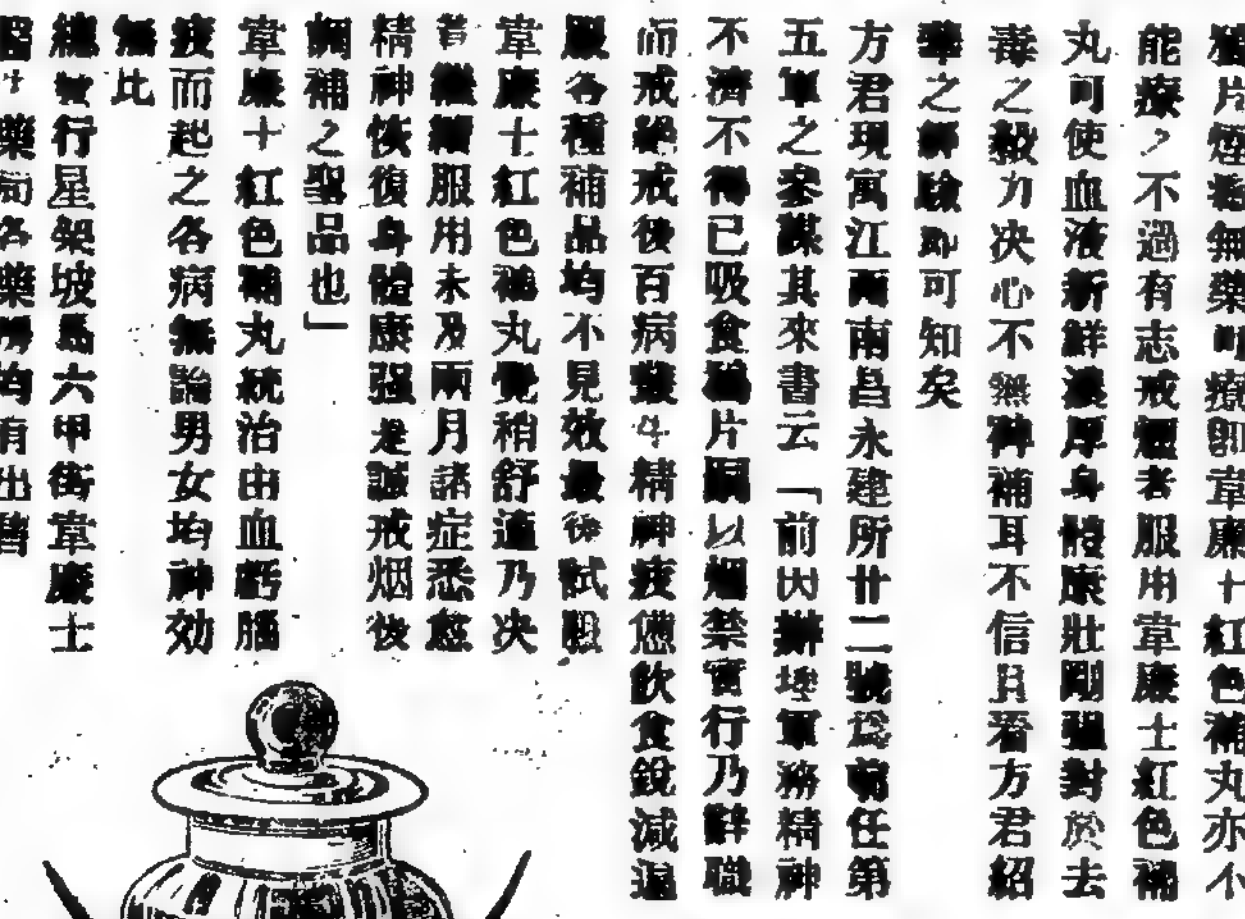 鴉片煙癮無藥可療卽韋廉士紅色補丸亦不
能療之不過有志戒煙者服用韋廉士紅色補
丸可使血液新鮮濃厚身體康壯剛强對於去
毒之毅力决心不無裨補耳不信且看方君紹
之經驗卽可知矣
方君現寓江西南昌永建所廿二號爲前任第
五軍之參謀其來書云「前因辦理軍務精神
不濟不得已吸食鴉片嗣以烟禁實行乃辭職
而戒絕戒後百病叢生精神疲憊飮食銳減
服各種補品均不見效最後試服
韋廉士紅色補丸覺稍舒適乃决
繼續服用未及兩月諸症悉愈
精神恢復身體康强是誠戒烟後
調補之聖品也」
韋廉士紅色補丸統治由血虧腦
疲而起之各病無論男女均神効
無比
總發行星架坡島六甲街韋廉士
藥局各藥房均有出售